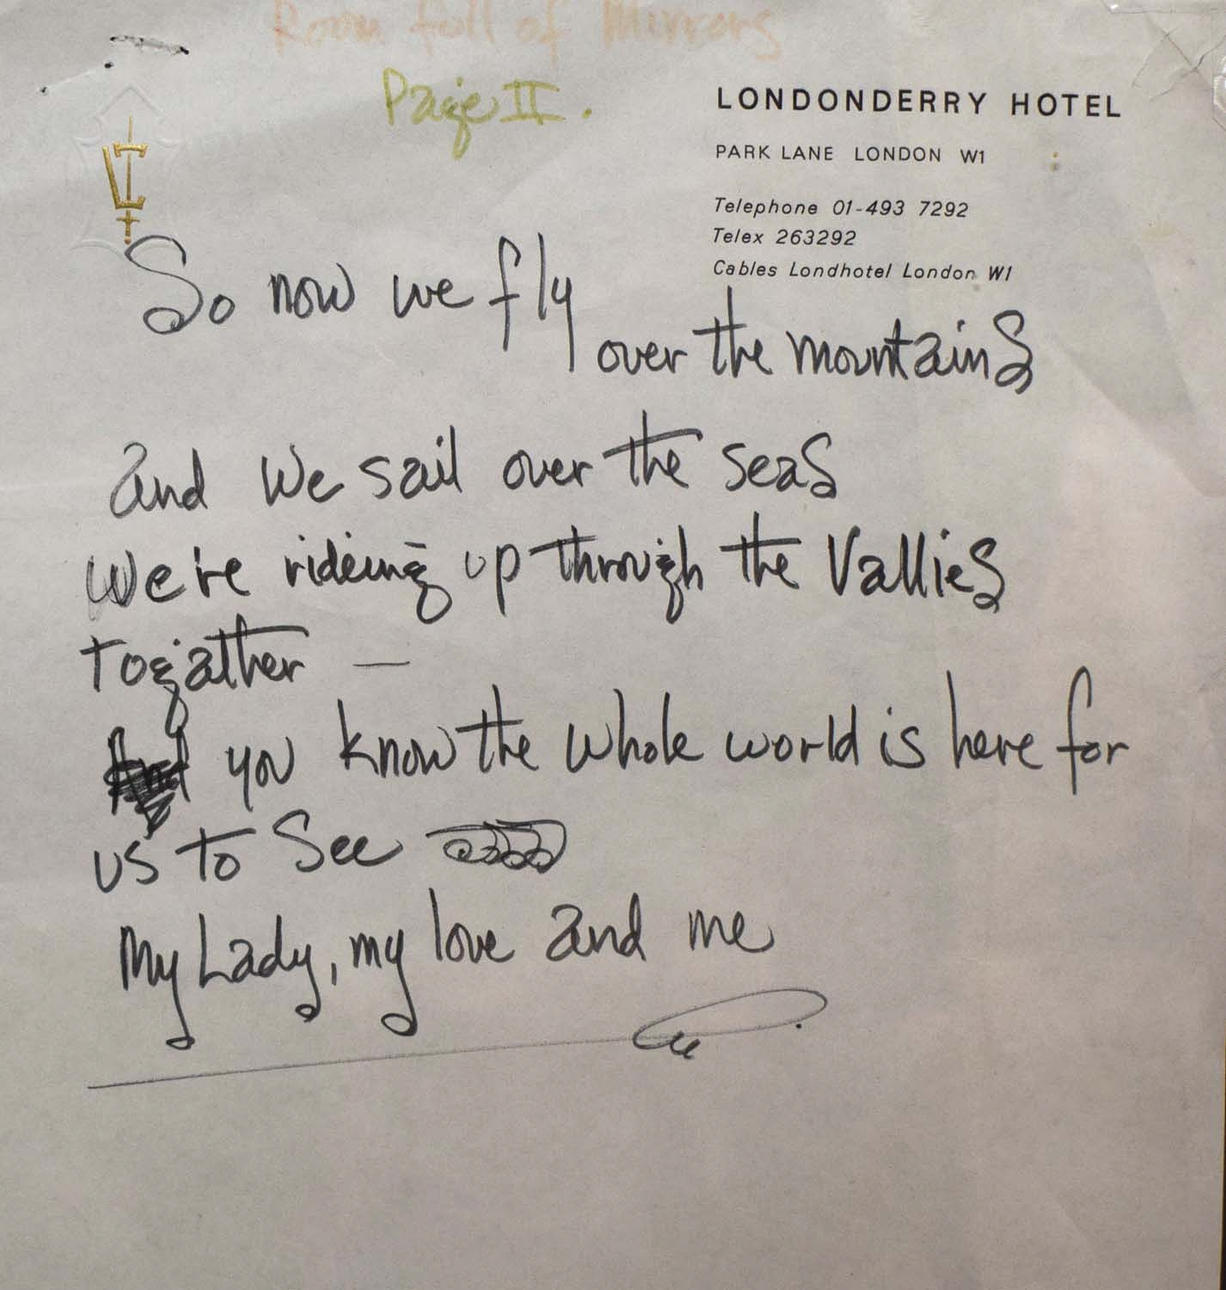 Room full of Mirrors
Page II.
LONDONDERRY HOTEL
PARK LANE LONDON W1
Telephone 01-493 7292
Telex 263292
Cables Londhotel London W1
So now we fly
over the mountains
and we sail over the seas
We're rideing up through the Vallies
togather —
And you know the whole world is here for
us to See
My Lady, my love and me